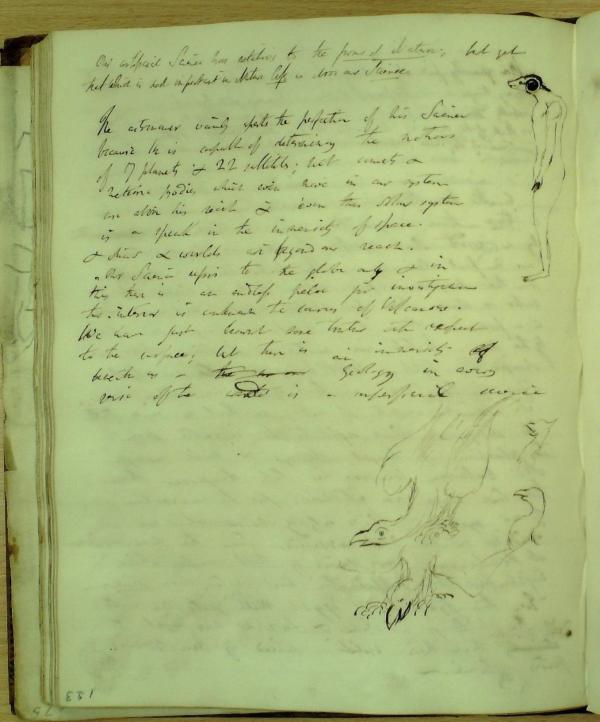 Our artificial Science has relations to the forms of Nature; but yet
that which is most important in Nature Life is above our Sciences
The astronomer vainly speaks the perfection of his Science
because he is capable of determining the motions
of 7 planets & 22 satellites; but comets &
meteoric bodies which even move in our system
are above his reach & even this solar system
is a speck in the immensity of space.
& suns & worlds are beyond our reach.
Our Science refers to the globe only & in
this there is an endless field for investigation
the interior is unknown the causes of Volcanoes.
We have just learnt some truths with respect
to the surface; but there is an immensity of
beneath us - Geology in every
sense of the word is a superficial science
133